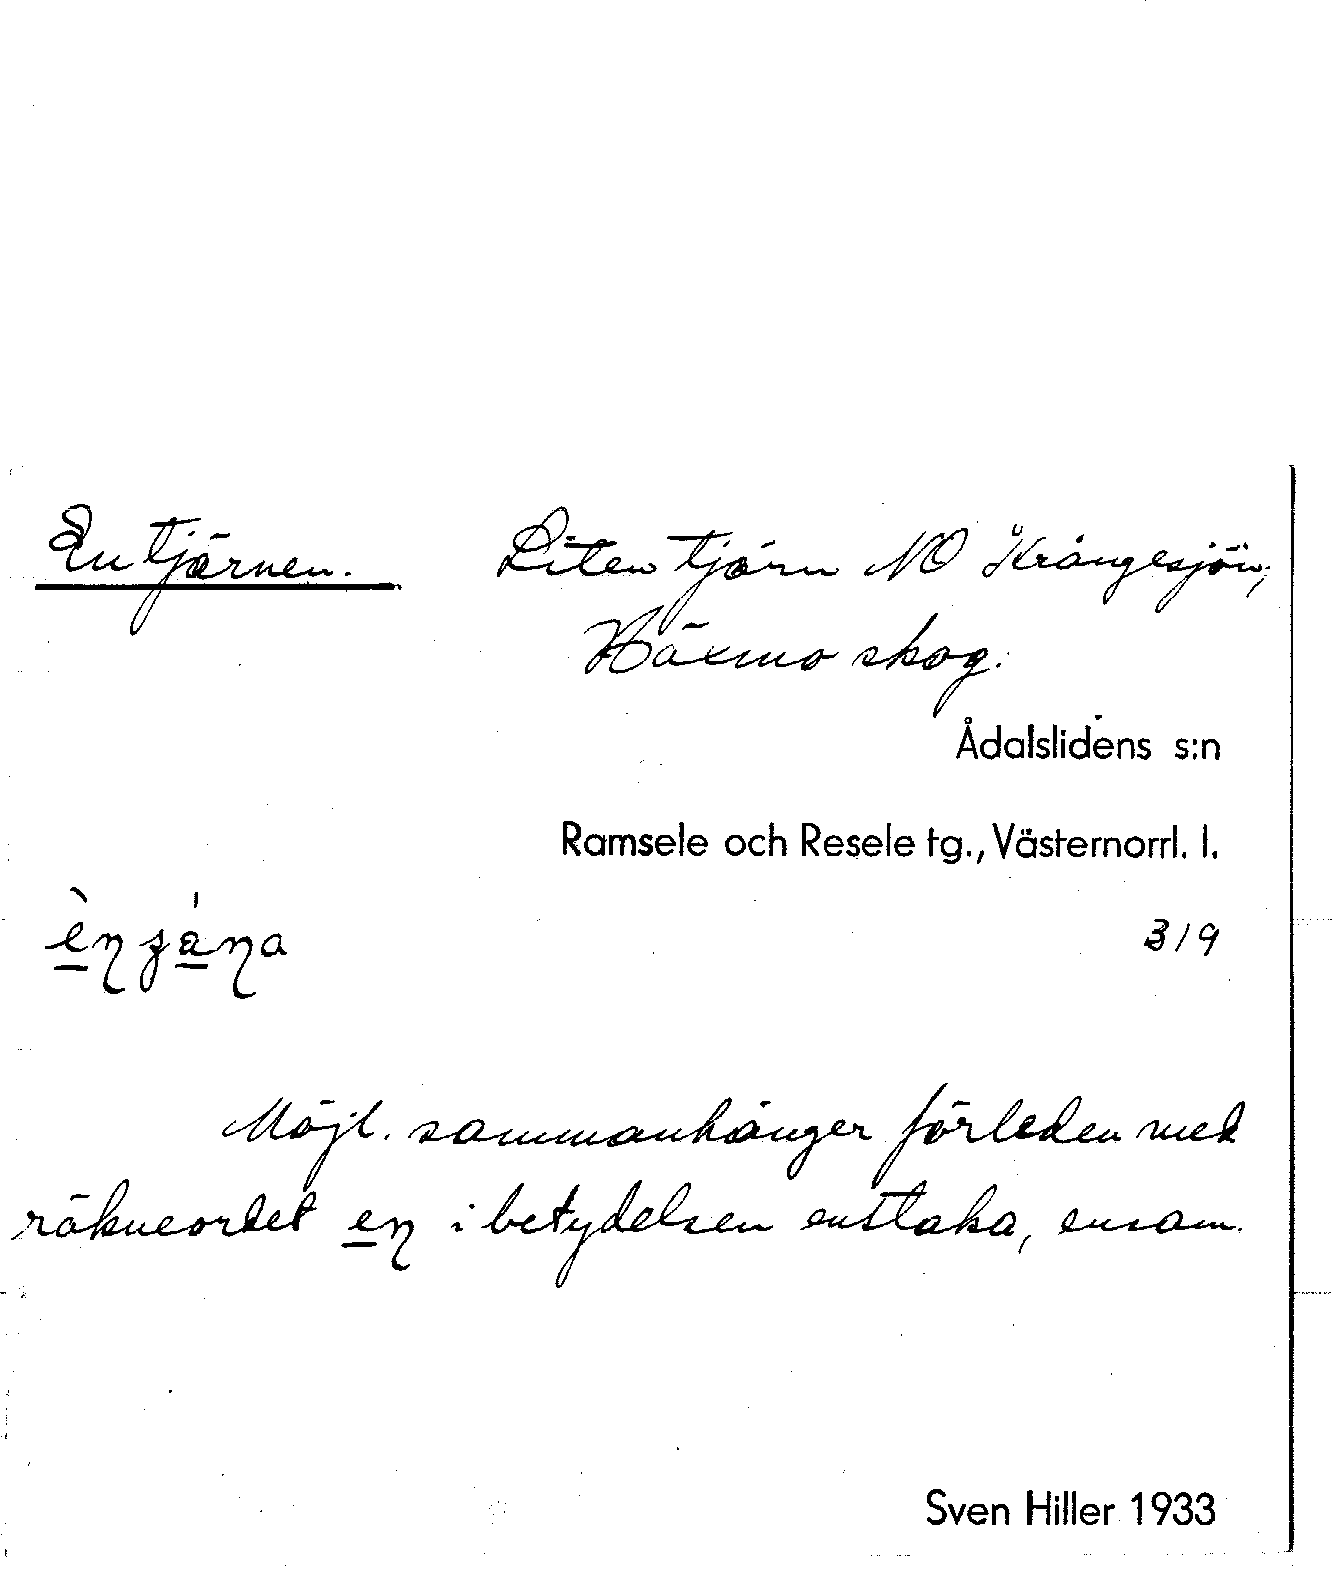 Entjärnen. Liten tjärn NO Krångesjön,
Växmo skog.
Ådalslidens s:n
Ramsele och Resele tg., Västernorrl. l.
319
Möjl. sammanhänger förleden med
räkneordet en i betydelsen enstaka, ensam.
Sven Hiller 1933